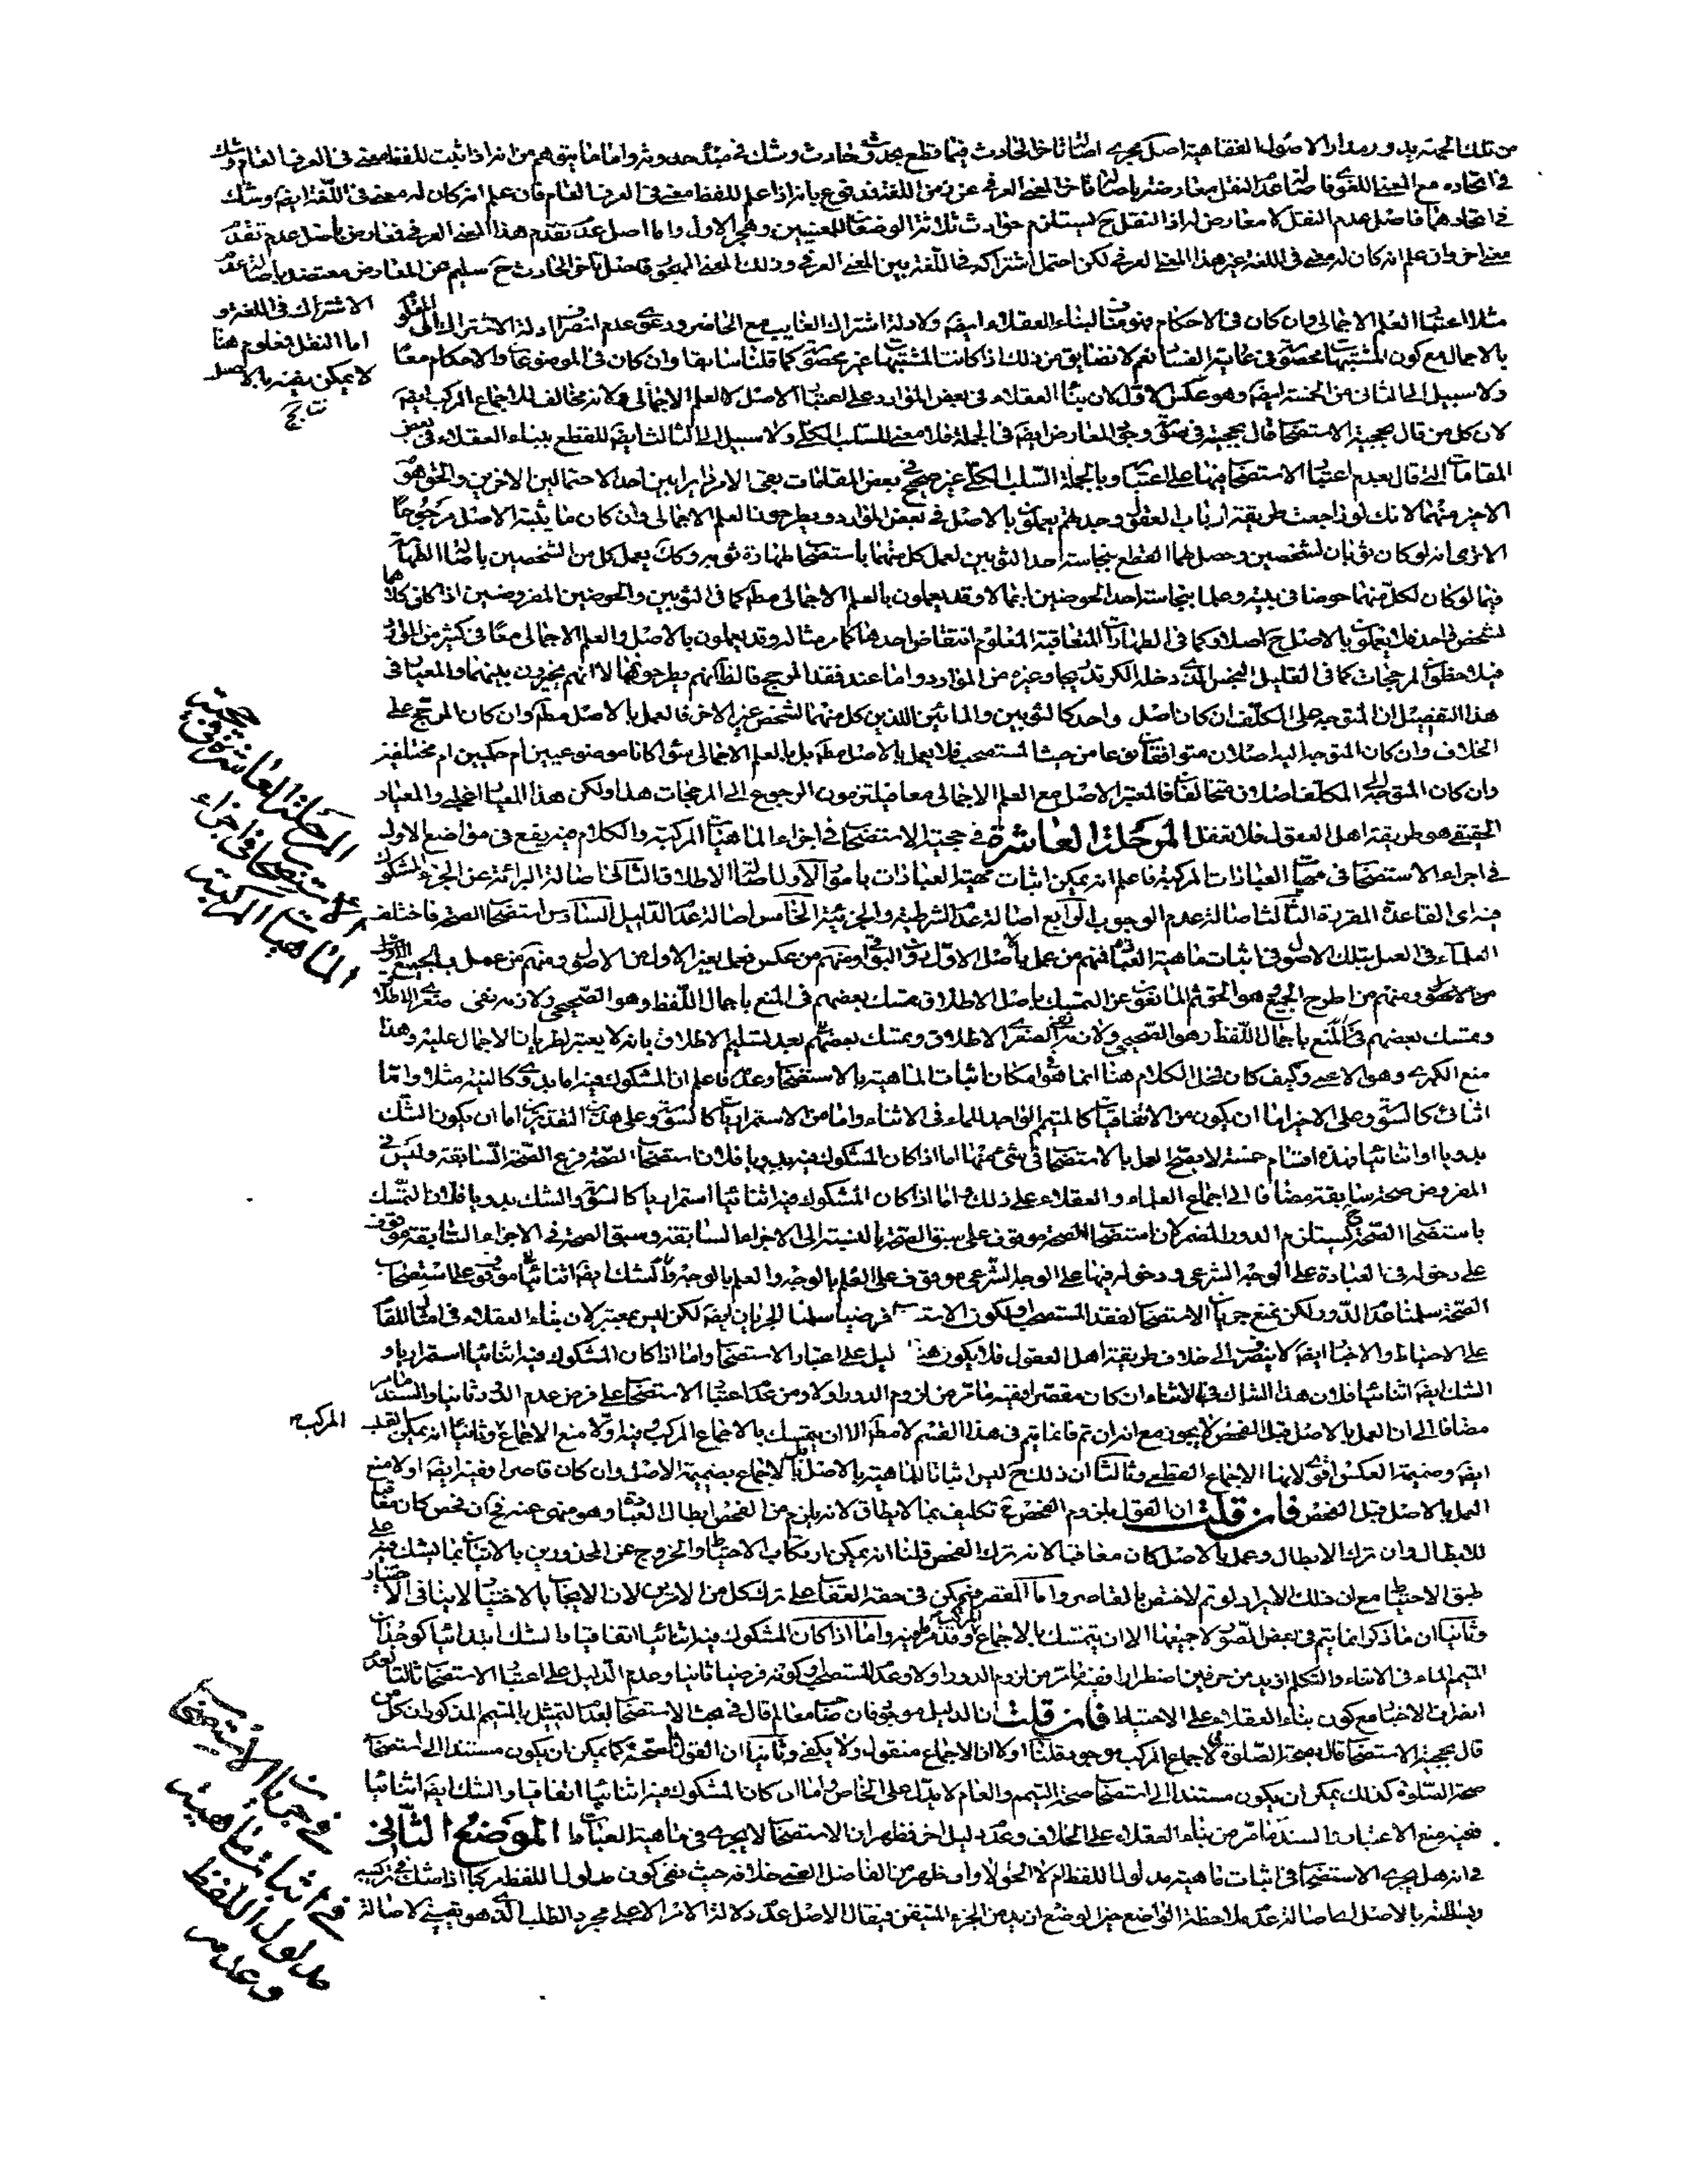 من تلك الجهة يدور مدار الاصول الفقاهية اصل يجرى اصالة تاخر الحادث فيما قطع بحدوث حادث وشك فى مبدء حدوثه واما ما يتوهم من انه اذا ثبت للفظ معنى فى العرف العام وشك
فى اتحاده مع المعنى اللغوى فاصالة عدم النقل معارضة باصالة تاخر المعنى العرفى عن زمن اللغة فمدفوع بانه اذا علم للفظ معنى فى العرف العام فان علم انه كان له معنى فى اللغة ايضا وشك
فى اتحادهما فاصل عدم النقل لا معارض له اذ النقل ح يستلزم حوادث ثلاثة الوضع للمعنيين وهجر الاول واما اصل عدم تقدم هذا المعنى العرفى فمعارض باصل عدم تقدم
معنى اخر وان علم انه كان له معنى فى اللغة غير هذا المعنى العرفى لكن احتمل اشتراكه فى اللغة بين المعنى العرفى وذلك المعنى المهجور فاصل تاخر الحادث ح سليم عن المعارض معتضد باصالة عدم
الاشتراك فى اللغة و
اما النقل فمعلوم هنا
لا يمكن نفيه بالاصل
مثلا اعتبار العلم الاجمالى وان كان فى الاحكام ممنوعا لبناء العقلاء ايضا ولادلة اشتراك الغايب مع الحاضر ودعوى عدم انصراف ادلة الاشتراك الى
بالاجمال مع كون المشتبهات محصورة فى غاية الفساد نعم لا نضايق من ذلك اذا كانت المشتبهات غير محصورة كما قلنا سابقا وان كان فى الموضوعات والاحكام معا
ولا سبيل الى الثانى من الخمسة ايضا وهو عكس الاول لان بناء العقلاء فى بعض الموارد على اعتبار الاصل لا العلم الاجمالى ولانه مخالف للاجماع المركب ايضا
لان كل من قال بحجية الاستصحاب قال بحجيته فى صورة وجود المعارض ايضا فى الجملة فلا معنى للسلب الكلى ولا سبيل الى الثالث ايضا للقطع ببناء العقلاء فى بعض
المقامات التى قال بعدم اعتبار الاستصحاب فيها على اعتباره وبالجملة السلب الكلى غير صحيح فى بعض المقامات بقى الامر دايرا بين احد الاحتمالين الاخرين والحق هو
الاخير منهما لانك لو راجعت طريقة ارباب العقول وجدتهم يعملون بالاصل فى بعض الموارد ويطرحون العلم الاجمالى وان كان ما يثبته الاصل مرجوحا
الا ترى انه لو كان ثوبان لشخصين وحصل لهما القطع بنجاسة احد الثوبين لعمل كل منهما باستصحاب طهارة ثوبه وكذا يعمل كل من الشخصين باصالة الطهارة
فيما لو كان لكل منهما حوضا فى بيته وعلما بنجاسة احد الحوضين اجمالا وقد يعملون بالعلم الاجمالى مطلقا كما فى الثوبين والحوضين المفروضين اذا كانا كلاهما
لشخص واحد فلا يعملون بالاصل ح اصلا وكما فى الطهارات المتعاقبة المعلوم انتقاض احدها كما مر مثاله وقد يعملون بالاصل والعلم الاجمالى معا فى كثير من الموارد
فيلاحظون المرجحات كما فى القليل النجس الذى دخله الكر تدريجا وغيره من الموارد واما عند فقد المرجح فالظاهر انهم يطرحونهما لا انهم يخيرون بينهما والمعيار فى
هذا التفصيل ان المتوجه على المكلف ان كان اصل واحد كالثوبين والمائين اللذين كل منهما لشخص غير الاخر فالعمل بالاصل مطلقا وان كان المرجح على
الخلاف وان كان المتوجه اليه اصلان متوافقان نوعا من حيث المستصحب فلا يعمل بالاصل مطلقا بل بالعلم الاجمالى سواء كانا موضوعيين ام حكميين ام مختلفين
وان كان المتوجه الى المكلف اصلان متخالفان فالمعتبر الاصل مع العلم الاجمالى معا فيلتزمون الرجوع الى المرجحات هذا ولكن هذا المعيار اغلبى والمعيار
الحقيقى هو طريقة اهل العقول فلا تغفل المرحلة العاشرة فى حجية الاستصحاب فى اجزاء الماهيات المركبة والكلام فيه يقع فى مواضع الاول
المرحلة العاشرة فى حجية
الاستصحاب فى اجزاء
الماهيات المركبة
فى اجراء الاستصحاب فى مهيات العبادات المركبة فاعلم انه يمكن اثبات مهية العبادات بامور الاول اصالة الاطلاق الثانى اصالة البرائة عن الجزء المشكوك
فيه اى القاعدة المقررة الثالث اصالة عدم الوجوب الرابع اصالة عدم الشرطية والجزئية الخامس اصالة عدم الدليل السادس استصحاب الصحة فاختلف
العلماء فى العمل بتلك الاصول فى اثبات ماهية العبادة فمنهم من عمل باصل الاول دون البواقى ومنهم من عكس فعمل بغير الاول من الاصول ومنهم من عمل بالجميع
ومنهم من طرح الجميع وهو الحق ثم المانعون عن التمسك باصل الاطلاق تمسك بعضهم فى المنع باجمال اللفظ وهو الصحيحى ولانه نفى صغرى الاطلاق
وتمسك بعضهم فى المنع باجمال اللفظ وهو الصحيحى ولانه نفى الصغرى الاطلاق وتمسك بعضهم بعد تسليم الاطلاق بانه لا يعتبر لطريان الاجمال عليه وهذا
منع الكبرى وهو الاعمى وكيف كان فمحل الكلام هنا انما هو امكان اثبات الماهية بالاستصحاب وعدمه فاعلم ان المشكوك فيه اما بدوى كالنية مثلا واما
اثنائى كالسورة وعلى الاخير اما ان يكون من الاتفاقيات كالمتيمم الواجد للماء فى الاثناء واما من الاستمراريات كالسورة وعلى هذه التقادير اما ان يكون الشك
بدويا او اثنائيا فهذه اقسام خمسة لا يصح العمل بالاستصحاب فى شىء منها اما اذا كان المشكوك فيه بدويا فلان استصحاب الصحة فرع الصحة السابقة وليس فى
المفروض صحة سابقة مضافا الى اجماع العلماء والعقلاء على ذلك واما اذا كان المشكوك فيه اثنائيا استمراريا كالسورة والشك بدويا فلان التمسك
باستصحاب الصحة يستلزم الدور المضمر لان استصحاب الصحة موقوف على سبق الصحة بالنسبة الى الاجزاء السابقة وسبق الصحة فى الاجزاء السابقة موقوف
على دخوله فى العبادة على الوجه الشرعى ودخوله فيها على الوجه الشرعى موقوف على العلم بالوجه والعلم بالوجه والشك ايضا اثنائيا موقوف على استصحاب
الصحة سلمنا عدم الدور ولكن نمنع جريان الاستصحاب لفقد المستصحب لكون فرضيا سلمنا الجريان ايضا لكن ليس بمعتبر لان بناء العقلاء فى امثال المقام
على الاحتياط والاخبار ايضا لا ينصرف الى خلاف طريقة اهل العقول فلا يكون دليل على اعتبار الاستصحاب واما اذا كان المشكوك فيه اثنائيا استمراريا و
الشك ايضا اثنائيا فلان هذا الشاك فى الاثناء ان كان مقصرا ففيه ما مر من لزوم الدور اولا ومن عدم اعتبار الاستصحاب على فرض عدم الدور ثانيا والسند ما مر
مضافا الى ان العمل بالاصل قبل الفحص لا يجوز مع انه ان تم فانما يتم فى هذا القسم لا مطلقا الا ان يتمسك بالاجماع المركب وفيه اولا منع الاجماع وثانيا انه يمكن القلب
المركب
ايضا وضميمة العكس اقوى لانها الاجماع القطعى وثالثا ان ذلك ح ليس اثباتا للماهية بالاصل بل بالاجماع بضميمة الاصل وان كان قاصرا ففيه ايضا اولا منع
العمل بالاصل قبل الفحص فان قلت ان القول بلزوم الفحص ح تكليف بما لا يطاق لانه يلزم من الفحص ابطال العبادة وهو منهى عنه فح ان فحص كان معاقبا
للابطال وان ترك الابطال وعمل بالاصل كان معاقبا لانه ترك الفحص قلنا انه يمكن ارتكاب الاحتياط والخروج عن المحذورين بالاتيان بما يشك فيه على
طبق الاحتياط مع ان ذلك الايراد لو تم لاختص بالقاصر واما المقصر فيمكن فى حقه العقاب على ترك كل من الامرين لان الايجاب بالاختيار لا ينافى الاختيار
وثانيا ان ما ذكر انما يتم فى بعض الصور لا جميعها الا ان يتمسك بالاجماع المركب وقد مر ما فيه واما اذا كان المشكوك فيه اثنائيا اتفاقيا والشك ابتدائيا كوجدان
المتيمم الماء فى الاثناء والتكلم ازيد من حرفين اضطرارا ففيه ما مر من لزوم الدور اولا وعدم المستصحب وكونه فرضيا ثانيا وعدم الدليل على اعتبار الاستصحاب ثالثا لعدم
انصراف الاخبار مع كون بناء العقلاء على الاحتياط فان قلت ان الدليل موجود فان صاحب المعالم قال فى بحث الاستصحاب بعد التمثيل بالمتيمم المذكور ان كل من
قال بحجية الاستصحاب قال بصحة الصلوة فالاجماع المركب موجود قلنا اولا ان الاجماع منقول ولا يكفى وثانيا ان القول بالصحة كما يمكن ان يكون مستندا الى استصحاب
صحة الصلوة كذلك يمكن ان يكون مستندا الى استصحاب صحة التيمم والعام لا يدل على الخاص واما اذا كان المشكوك فيه اثنائيا اتفاقيا والشك ايضا اثنائيا
ففيه منع الاعتبار والسند ما مر من بناء العقلاء على الخلاف وعدم دليل اخر فظهر ان الاستصحاب لا يجرى فى ماهية العبادات الموضع الثانى
فى انه هل يجرى الاستصحاب فى اثبات ماهية مدلول اللفظ ام لا الحق الاول وظهر من الفاضل القمى خلافه حيث نفى كون مدلول اللفظ مركبا اذا شك فى تركيبه
وبساطته بالاصل اى اصالة عدم ملاحظة الواضع حين الوضع ازيد من الجزء المتيقن فيقال الاصل عدم دلالة الامر الا على مجرد الطلب الذى هو يقينى لاصالة
فى جريان الاستصحاب
فى اثبات ماهية
مدلول اللفظ
وعدمه